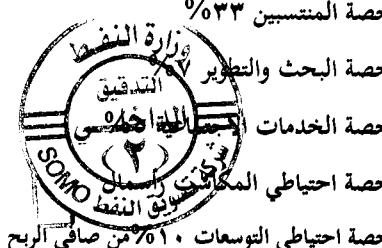 حصة المنتسبين ٣٣%
حصة البحث والتطوير ٧%
حصة الخدمات الاجتماعية
حصة احتياطي رأسمال
حصة احتياطي التوسعات ١٠% من صافي الربح
وزارة النفط
التدقيق
الداخلي
(٢)
شركة تسويق النفط SOMO